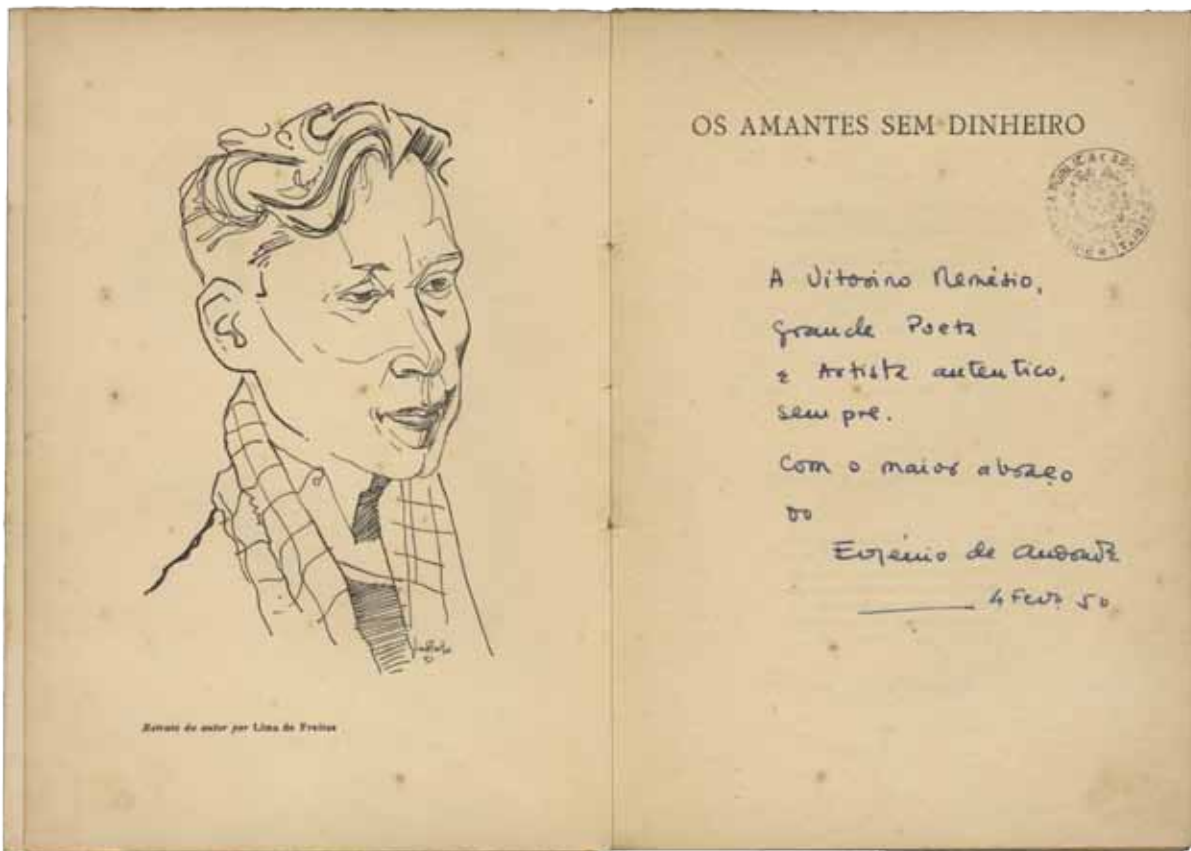 Retrato do autor por Lima de Freitas
OS AMANTES SEM DINHEIRO
A Vitorino Nemésio,
grande Poeta
e Artista autentico,
sempre.
Com o maior abraço
do
Eugénio de Andrade
4 Fevº 50